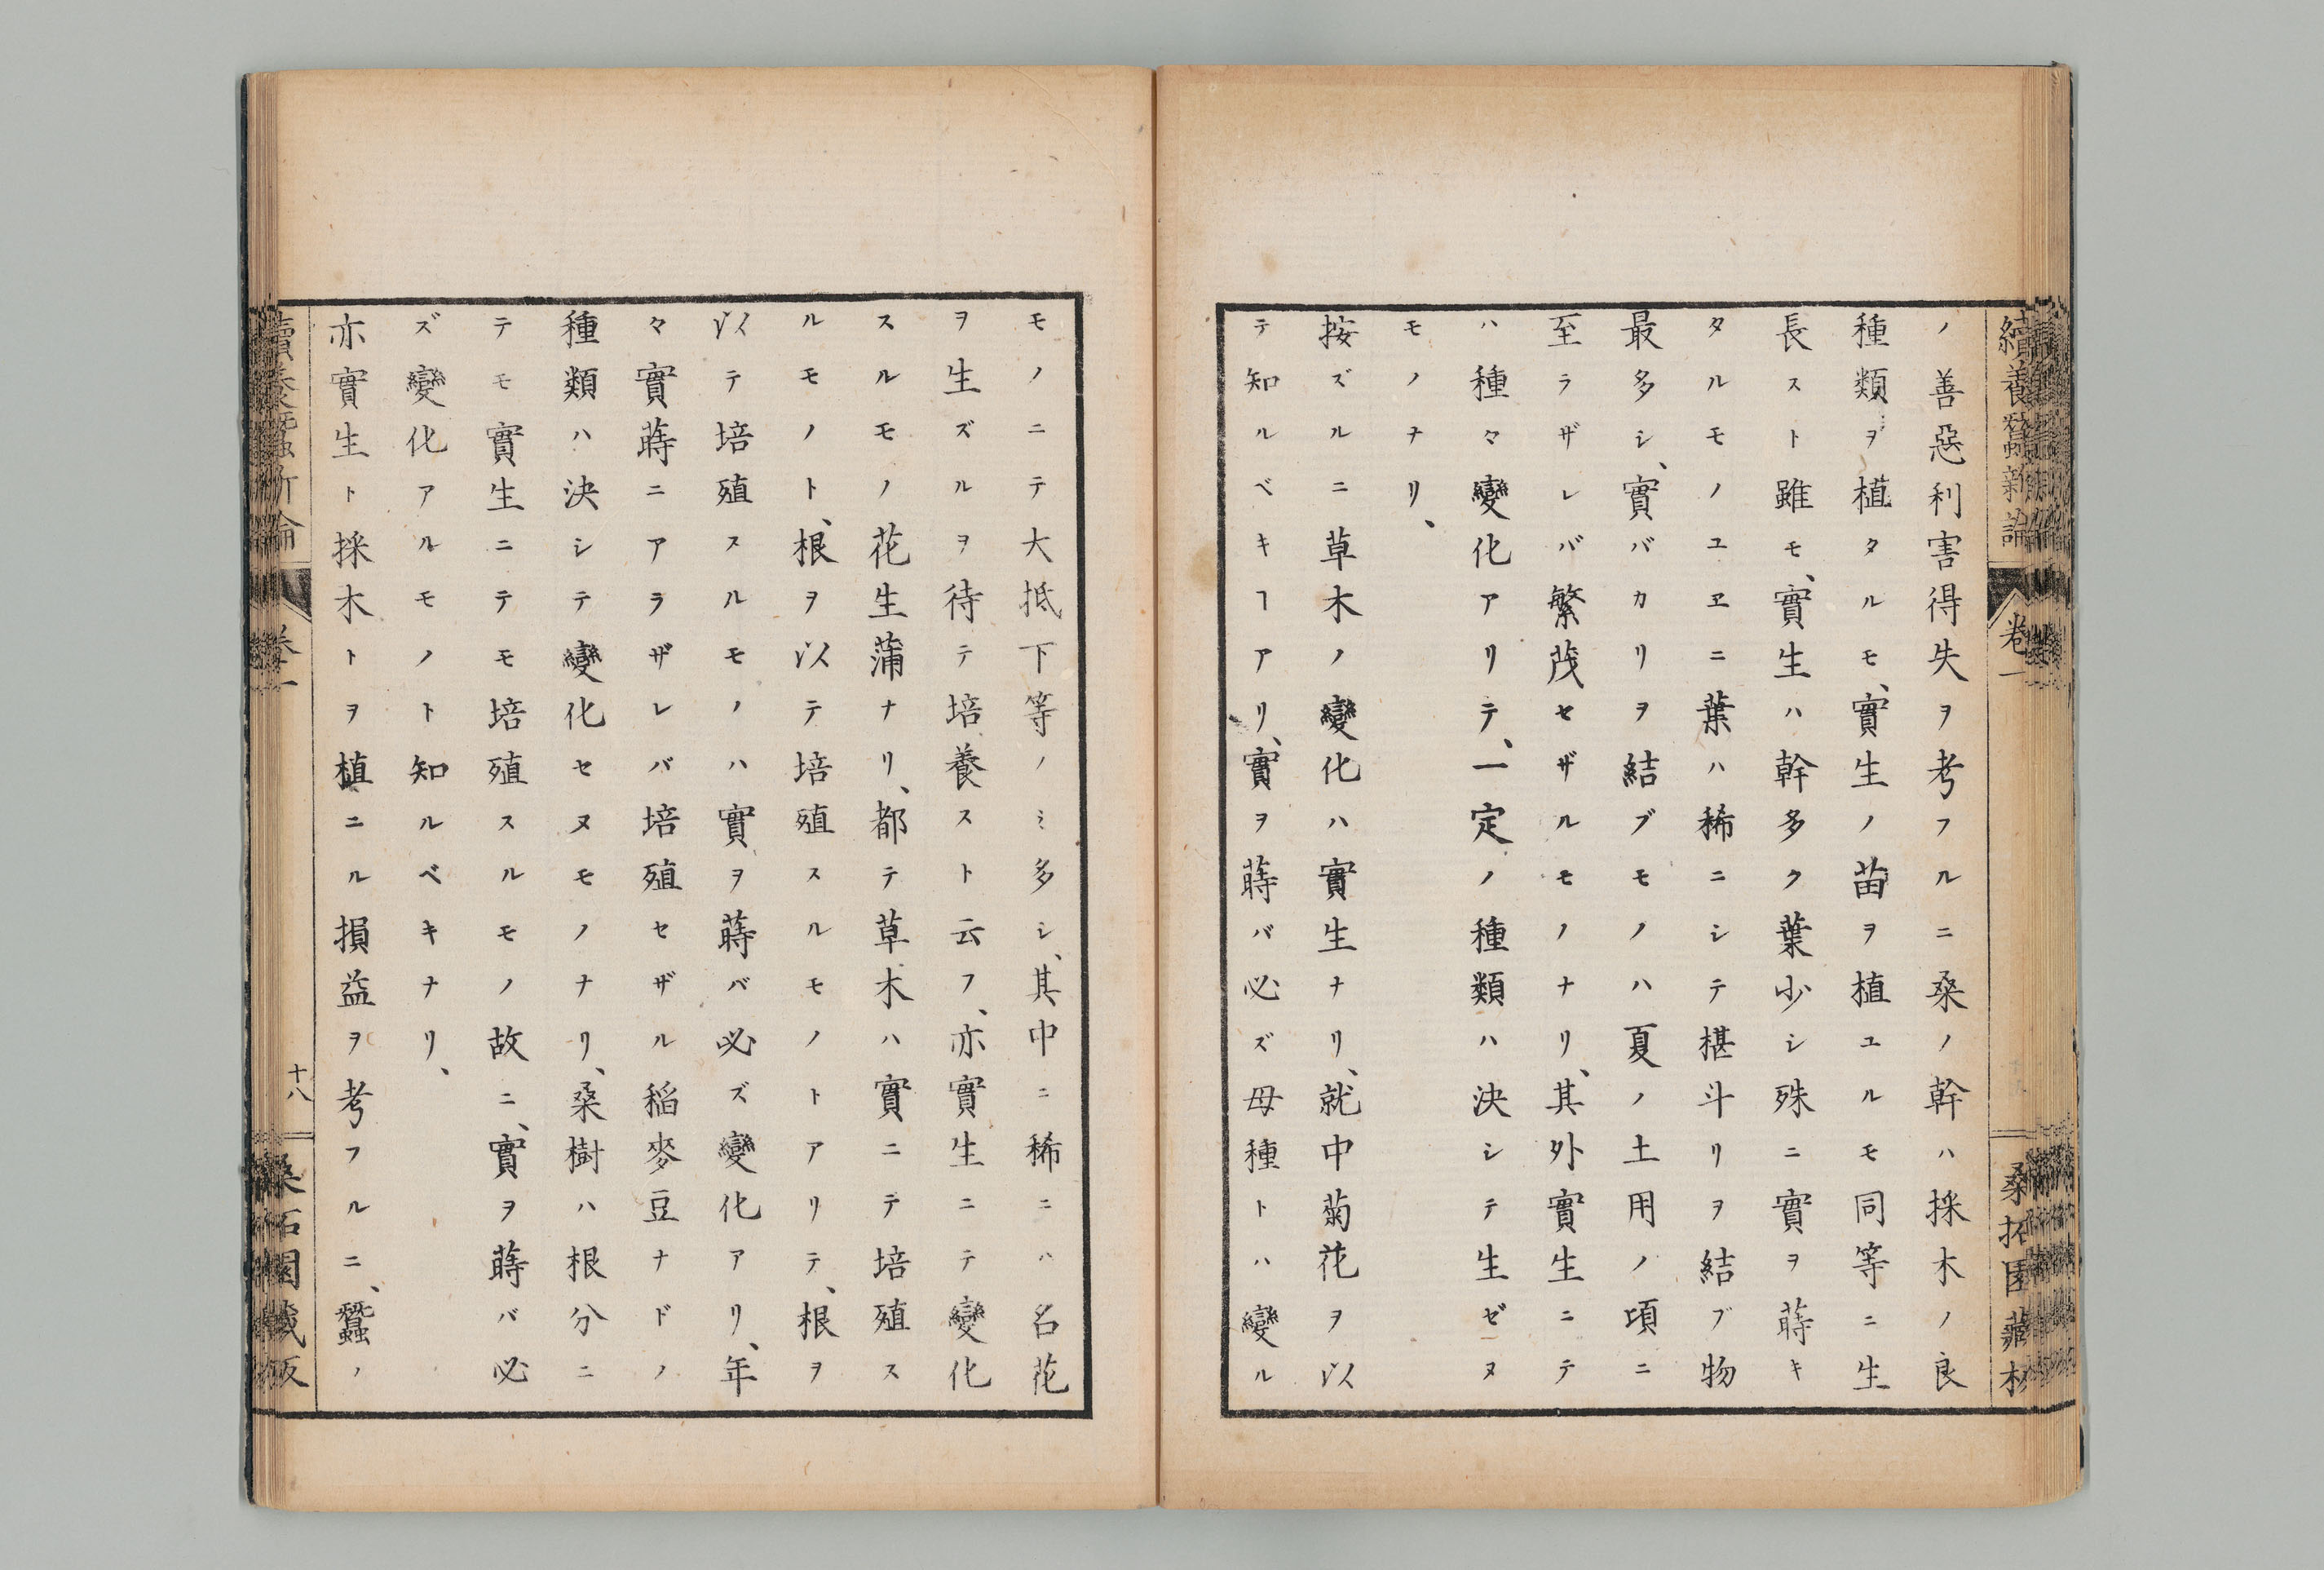 續養蠶新論
卷一
桑柘園藏板
ノ善惡利害得失ヲ考フルニ桑ノ幹ハ採木ノ良
種類ヲ植タルモ、實生ノ苗ヲ植ユルモ同等ニ生
長スト雖モ、實生ハ幹多ク葉少シ殊ニ實ヲ蒔キ
タルモノユヱニ葉ハ稀ニシテ椹斗リヲ結ブ物
最多シ、實バカリヲ結ブモノハ夏ノ土用ノ頃ニ
至ラザレバ繁茂セザルモノナリ、其外實生ニテ
ハ種々變化アリテ、一定ノ種類ハ決シテ生ゼヌ
モノナリ、
按ズルニ草木ノ變化ハ實生ナリ、就中菊花ヲ以
テ知ルベキヿアリ、實ヲ蒔バ必ズ母種トハ變ル
モノニテ大抵下等ノミ多シ、其中ニ稀ニハ名花
ヲ生ズルヲ待テ培養スト云フ、亦實生ニテ變化
スルモノノ花生蒲ナリ、都テ草木ハ實ニテ培殖ス
ルモノト、根ヲ以テ培殖スルモノトアリテ、根ヲ
以テ培殖スルモノハ實ヲ蒔バ必ズ變化アリ、年
々實蒔ニアラザレバ培殖セザル稲麥豆ナドノ
種類ハ決シテ變化セヌモノナリ、桑樹ハ根分ニ
テモ實生ニテモ培殖スルモノ故ニ、實ヲ蒔バ必
ズ變化アルモノト知ルベキナリ、
亦實生ト採木トヲ植ニル損益ヲ考フルニ、蠶ノ
續養蠶新論
卷一
十八
桑柘園藏板